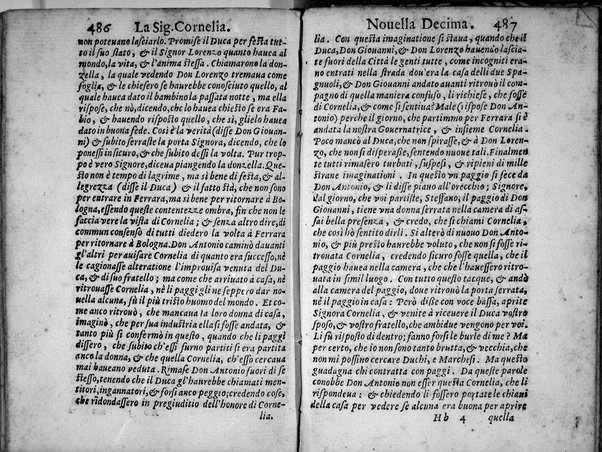 486 La Sig. Cornelia.
non potevano lasciarlo. Promise il Duca per festa tut-
to il suo stato, & il Signor Lorenzo quanto hauea al
mondo, la vita, & l'anima stessa. Chiamarono la don-
zella, la quale vedendo Don Lorenzo tremaua come
foglia, & le chiesero se haurebbe conosciuto quello, al
quale hauea dato il bambino la passata notte, ma ella
rispose, che nò, dicendo, che lo hauea chiesto se era Fa-
bio, & hauendo risposto quello, che sì, glielo hauea
dato in buona fede. Così è la verità (disse Don Giouan
ni) & subito serraste la porta Signora, dicendo, che lo
ponessi in sicuro, & che subito dessi la volta. Pur trop
po è vero Signore, diceua piangendo la donzella. Que-
sto non è tempo da lagrime, ma sì bene di festa, & al-
legrezza (disse il Duca) & il fatto stà, che non sono
per entrare in Ferrara, ma sì bene per ritornare à Bo-
logna, essendo queste contentezze ombra, fin che non le
faccia vere la vista di Cornelia; & senza altro dire, di
commun consenso di tutti diedero la volta à Ferrara
per ritornare à Bologna. Don Antonio caminò dauanti
gl'altri per auisare Cornelia di quanto era successo, nè
le cagionasse alteratione l'improuisa venuta del Du-
ca, & di suo fratello; ma come che arriuato à casa, nè
ritrouasse Cornelia, nè li paggi gli ne seppero dar no-
uella alcuna, fù il più tristo huomo del mondo. Et co-
me anco ritrouò, che mancaua la loro donna di casa,
imaginò, che per sua industria ella si fosse andata, &
tanto più si confermò in questo, quando che li paggi
dissero, che subito ch'essi furno partiti si era partita
anco la donna, & che quella Cornelia, ch'esso cercaua
mai haueano veduta. Rimase Don Antonio fuori di se
stesso, tenendo che il Duca gl'haurebbe chiamati men-
titori, ingannatori, & forsi anco peggio; credendo cose,
che ridondassero in pregiuditio dell'honore di Corne-
lia,
Nouella Decima. 487
lia. Con questa imaginatione si staua, quando che il
Duca, Don Giouanni, & Don Lorenzo hauendo lascia-
te fuori della Città le genti tutte, come incogniti era-
no entrati nella strada dou'era la casa delli due Spa-
gnuoli, & Don Giouanni andato auanti ritrouò il com-
pagno di quella maniera confuso, li richiese, che fosse
di Cornelia, & come si sentiua? Male (rispose Don An-
tonio) perche il giorno, che partimmo per Ferrara si è
andata la nostra Gouernatrice, & insieme Cornelia.
Poco mancò al Duca, che non spirasse, & à Don Loren-
zo, che non si disperasse, sentendo nuoue tali. Finalmen
te tutti rimasero turbati, suspesi, & ripieni di mille
strane imaginationi. In questo vn paggio si fece da
Don Antonio, & li disse piano all'orecchio; Signore,
dal giorno, che voi partiste, Steffano, il paggio di Don
Giouanni, tiene vna donna serrata nella camera di as-
sai bella presenza, & credo, che si chiami Cornelia,
che così hò sentito dirli. Si alterò di nuouo Don Anto-
nio, & più presto haurebbe voluto, che non si fosse ri-
trouata Cornelia, credendo sicuro fosse quella, che il
paggio hauea nella camera, che che l'hauessero ritro-
uata in simil luogo. Con tutto questo tacque, & andò
alla camera del paggio, doue ritrouò la porta serrata,
nè il paggio in casa: Però disse con voce bassa, aprite
Signora Cornelia, & venite à riceuere il Duca vostro
sposo, & vostro fratello, che ambidue vengono per voi.
Li fù risposto di dentro; fannosi le burle di me? Ma
per certo, che io non sono tanto brutta, & vecchia, che
non mi possino cercare Duchi, e Marchesi. Ma questo
guadagna chi contratta con paggi. Da queste parole
conobbe Don Antonio non esser questa Cornelia, che li
rispondeua: & chiedendo li fossero portate le chiaui
della casa per vedere se alcuna era buona per aprire
Hh 4 quella